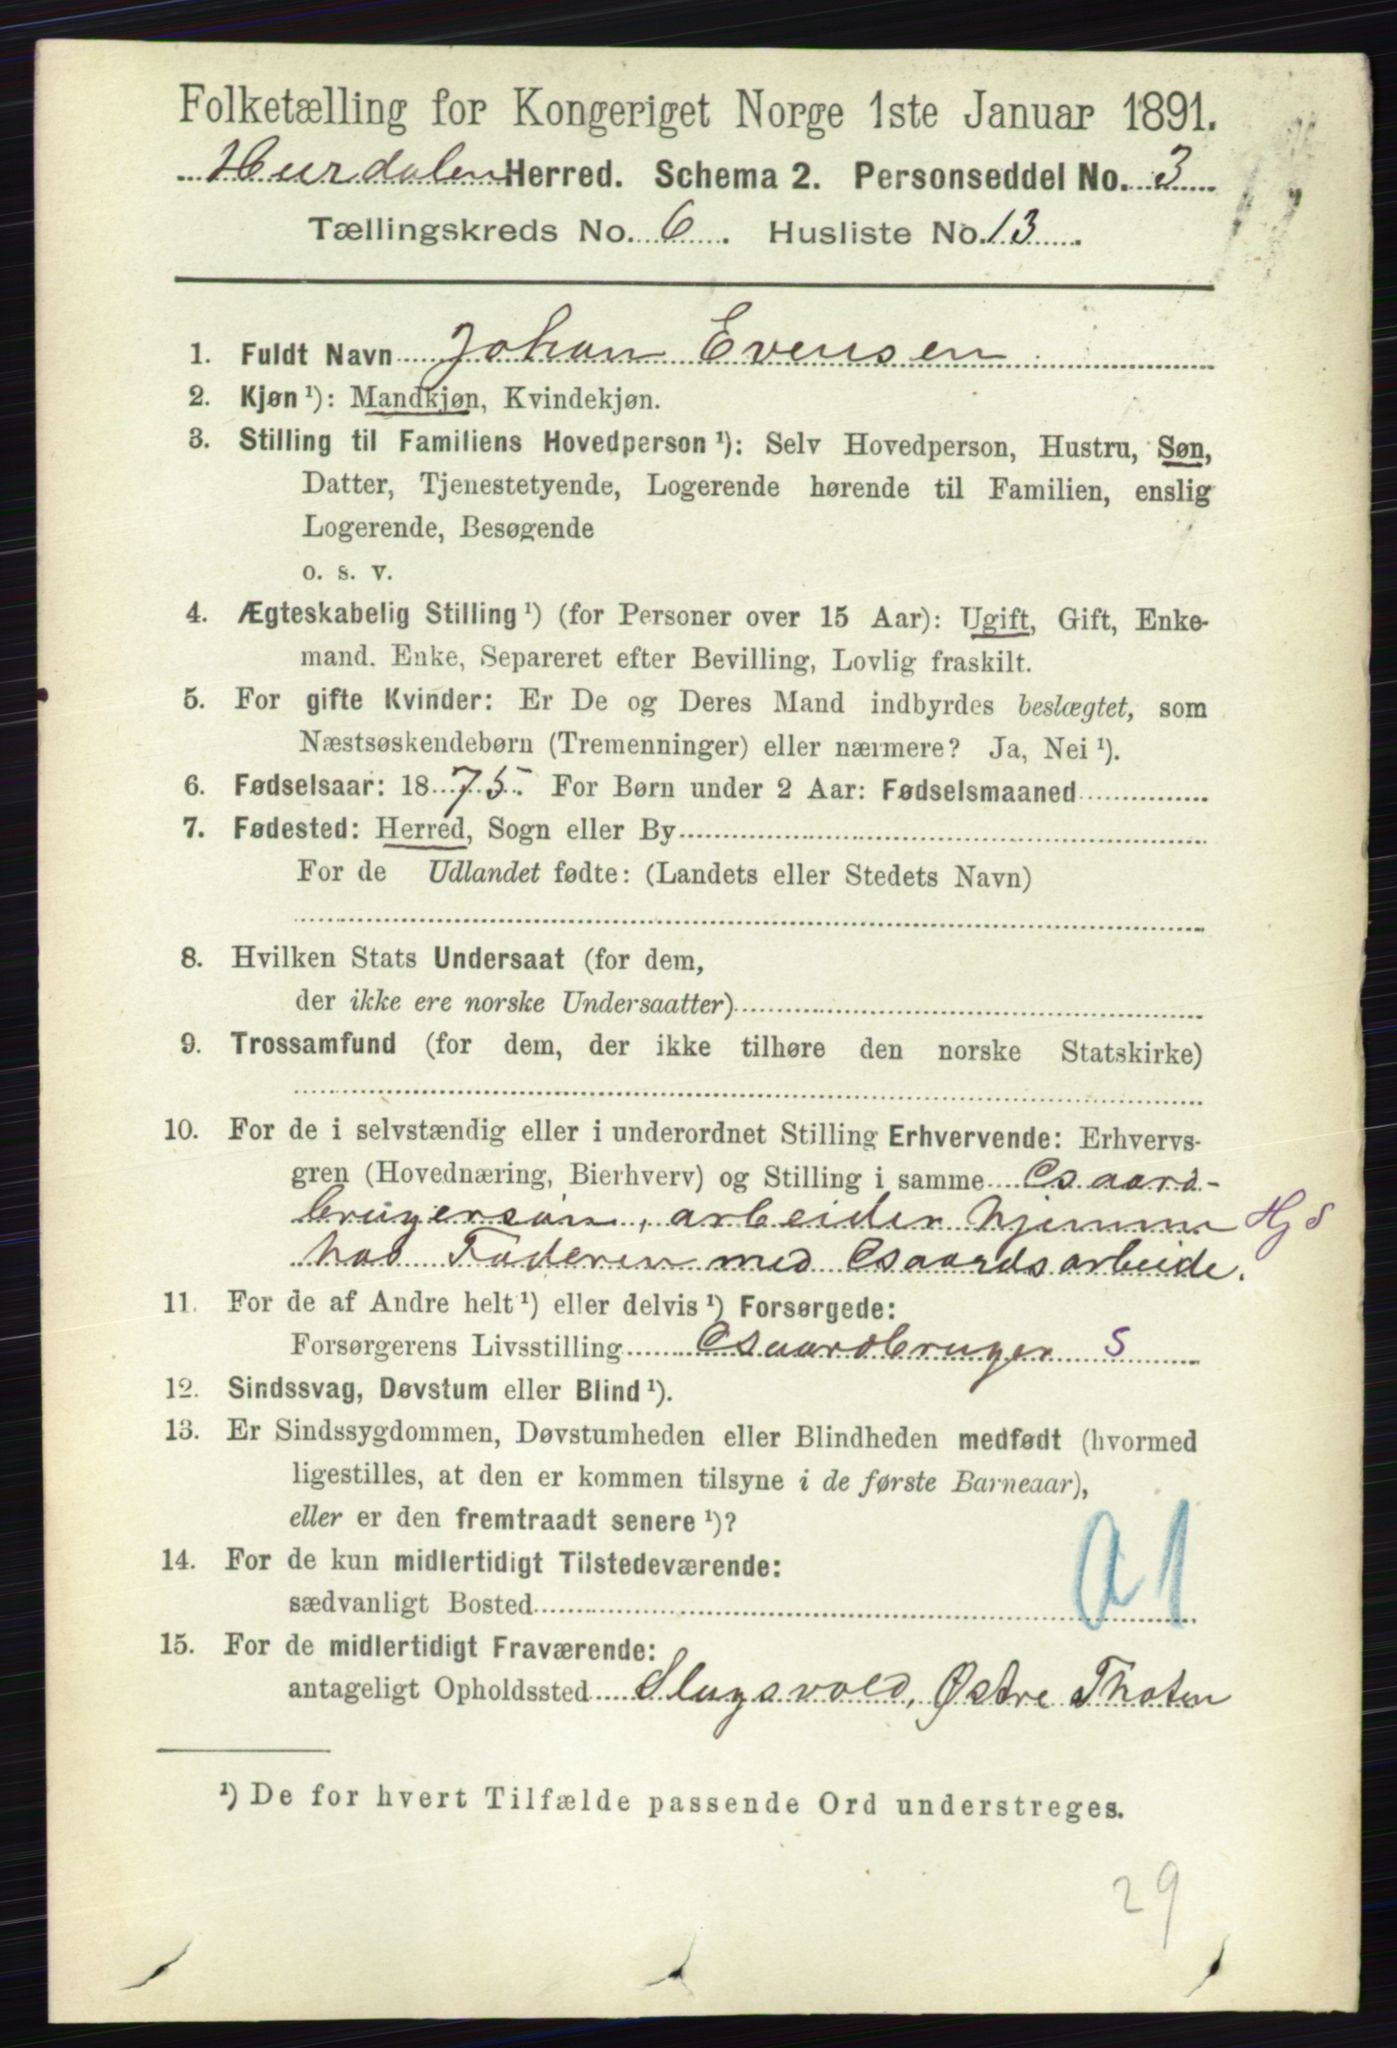 Folketælling for Kongeriget Norge 1ste Januar 1891.
Hurdalen Herred. Schema 2. Personseddel No. 3
Tællingskreds No. 6. Husliste No. 13.
1. Fuldt Navn Johan Evensen
2. Kjøn ¹): Mandkjøn, Kvindekjøn.
3. Stilling til Familiens Hovedperson ¹): Selv Hovedperson, Hustru, Søn,
Datter, Tjenestetyende, Logerende hørende til Familien, enslig
Logerende, Besøgende
o. s. v.
4. Ægteskabelig Stilling ¹) (for Personer over 15 Aar): Ugift, Gift, Enke-
mand. Enke, Separeret efter Bevilling, Lovlig fraskilt.
5. For gifte Kvinder: Er De og Deres Mand indbyrdes beslægtet, som
Næstsøskendebørn (Tremenninger) eller nærmere? Ja, Nei ¹).
6. Fødselsaar: 1875. For Børn under 2 Aar: Fødselsmaaned
7. Fødested: Herred, Sogn eller By
For de Udlandet fødte: (Landets eller Stedets Navn)
8. Hvilken Stats Undersaat (for dem,
der ikke ere norske Undersaatter)
9. Trossamfund (for dem, der ikke tilhøre den norske Statskirke)
10. For de i selvstændig eller i underordnet Stilling Erhvervende: Erhvervs-
gren (Hovednæring, Bierhverv) og Stilling i samme Gaard-
brugersøn, arbeider hjemme Hj S
hos Faderen med Gaardsarbeide.
11. For de af Andre helt ¹) eller delvis ¹) Forsørgede:
Forsørgerens Livsstilling Gaardbruger S
12. Sindssvag, Døvstum eller Blind ¹).
13. Er Sindssygdommen, Døvstumheden eller Blindheden medfødt (hvormed
ligestilles, at den er kommen tilsyne i de første Barneaar),
eller er den fremtraadt senere ¹)?
14. For de kun midlertidigt Tilstedeværende:
sædvanligt Bosted
a1
15. For de midlertidigt Fraværende:
antageligt Opholdssted Slugsvold, Østre Thoten
¹) De for hvert Tilfælde passende Ord understreges.
29